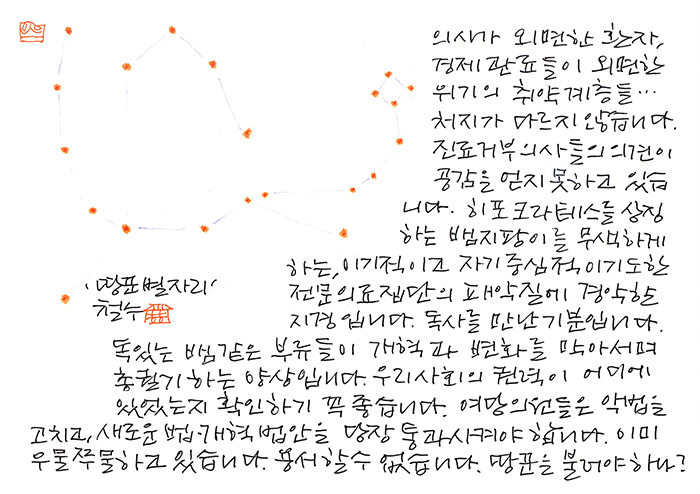 의사가 외면한 환자,
경제관료들이 외면한
위기의 취약계층들…
처지가 다르지 않습니다.
진료거부의사들의 의견이
공감을 얻지 못하고 있습
니다. 히포크라테스를 상징
하는 뱀지팡이를 무색하게
하는, 이기적이고 자기중심적이기도한
전문의료집단의 패악질에 경악할
지경입니다. 독사를 만난 기분입니다.
독있는 뱀같은 부류들이 개혁과 변화를 막아서며
총궐기하는 양상입니다. 우리사회의 권력이 어디에
있었는지 확인하기 꼭 좋습니다. 여당의원들은 악법을
고치고, 새로운 법·개혁법안을 당장 통과시켜야 합니다. 이미
우물쭈물하고 있습니다. 용서할수 없습니다. 땅꾼을 불러야하나?
'땅꾼별자리'
철수